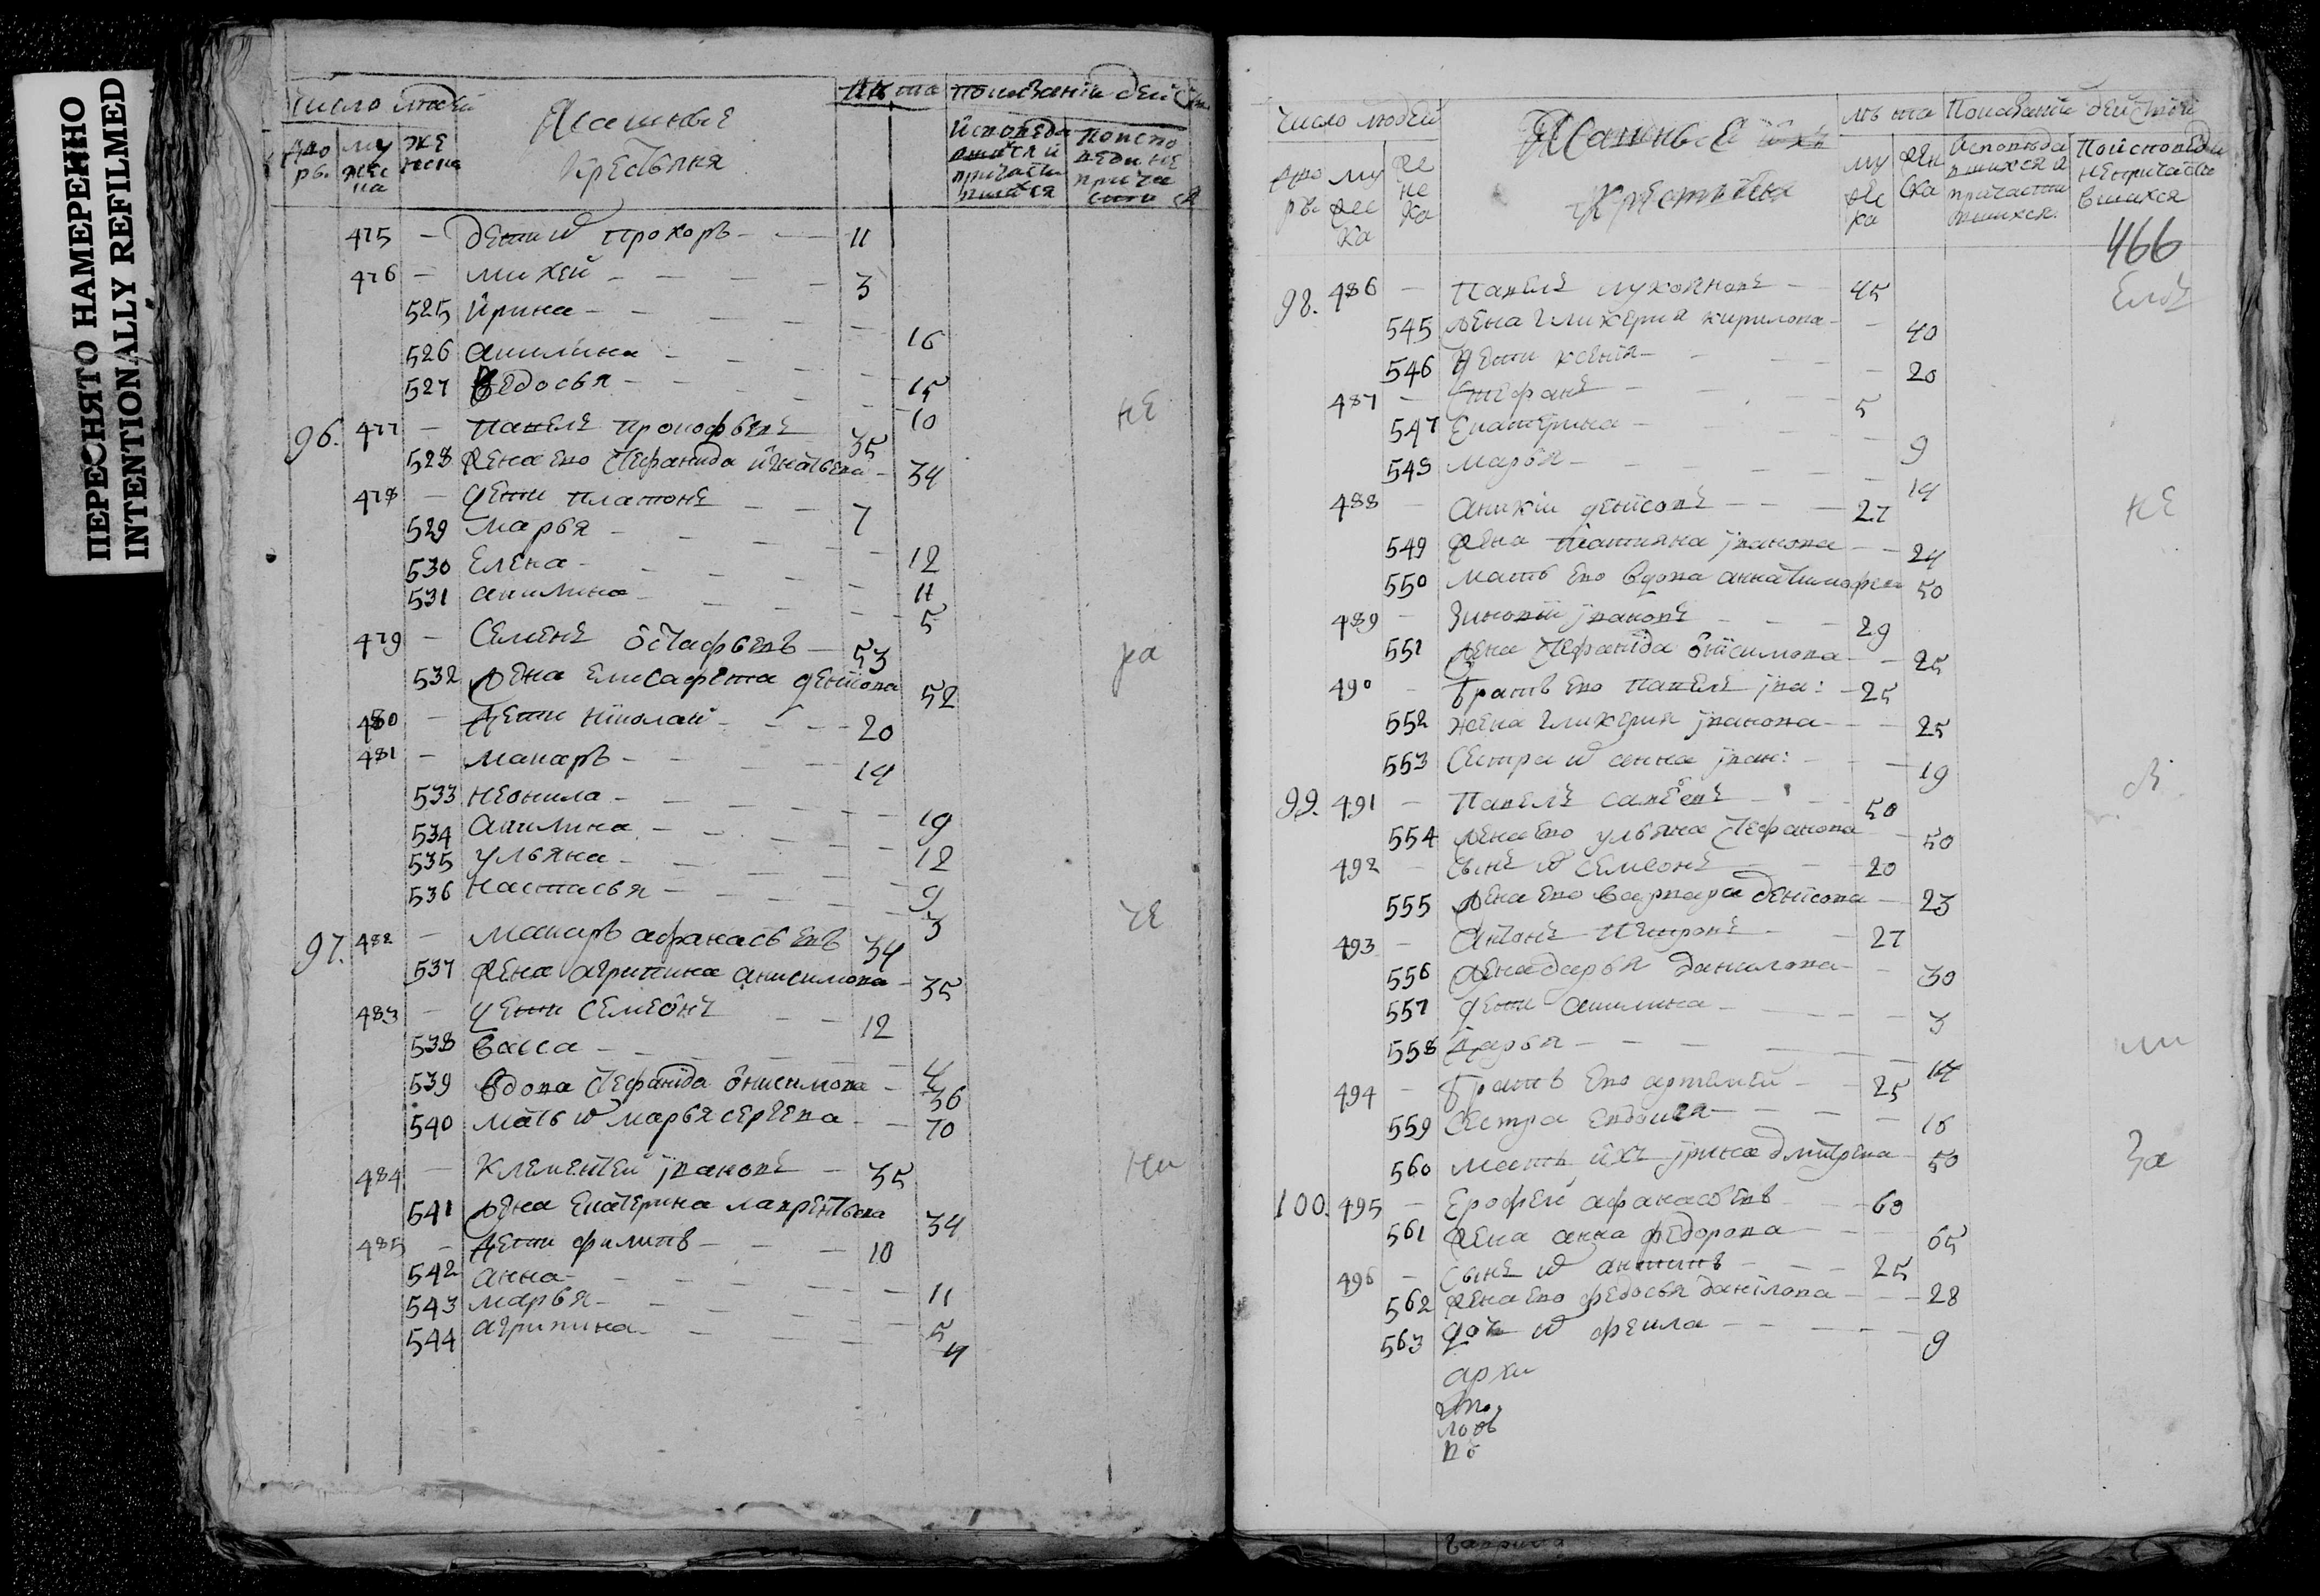 ПЕРЕСНЯТО НАМЕРЕННО
INTENTIONALLY REFILMED
Число людей
Ясашные
крестьяня
лѣта
Показаніи дейст
дво
ръ.
му
жес
ка
же
неска
Исповеда
вшихся и
причасти
вшихся
поиспо
веди не
прича
сти
475 — дети ѿ прохоръ — 11
476 — михей — 3
525 ирина — 16
526 акилина — 15
527 ѳедосья — 10
96. 477 — павелъ прокофьевъ 35
не
528 жена ево стефанида игнатьева — 34
478 — дети платонъ — 7
529 марья — 12
530 елена — 11
531 акилина — 5
479 — семенъ остафьевъ — 53
ра
532 жена елисафета денисова 52
480 — дети николай — 20
481 — макаръ — 14
533 неонила — 19
534 акилина — 12
535 ульяна — 9
536 настасья — 3
97. 482 — макаръ афанасьевъ 34
че
537 жена агрипина анисимова — 35
483 — дети семеонъ — 12
538 васса — 4
539 вдова стефанида онисимова — 36
540 мать ѿ марья сергева — 70
484 — клементей ивановъ — 35
ни
541 жена екатерина лаврентьева 34
485 — дети филипъ — 10
542 анна — 11
543 марья — 5
544 агрипина — 4
Число людей
Ясашные
крестьяня
лѣта
Показаніи действ
дво
ръ.
му
жес
ка
же
не
ка
му
жес
ка
жен
ска
Исповеда
вшихся и
причасти
вшихся.
Поисповеди
непричасти
вшихся
466
98. 486 — павелъ лукояновъ — 45
545 жена гликерия кирилова — 40
546 дети ксения — 20
487 — стефанъ — 5
547 екатерина — 9
548 марья — 14
488 — аникии денисовъ — 27
не
549 жена татияна иванова — 24
550 мать ево вдова анна тимофеева 50
489 — зиновии ивановъ — 29
551 жена стефанида онисимова — 25
490 — братъ ево павелъ ива: — 25
552 жена гликерия иванова — 25
553 сестра ѿ анна иван: — 19
99. 491 — павелъ савеевъ — 50
554 жена ево ульяна стефанова — 50
492 — сынъ ѿ семеонъ — 20
555 жена ево варвара денисова — 23
493 — антонъ петровъ — 27
556 жена дарья данилова — 30
557 дети акилина — 3
558 дарья — 14
ми
494 — братъ ево артемей — 25
559 сестра евдокея — 16
560 мать ихъ ирина дмитрева — 50
за
100. 495 — ерофей афанасьевъ — 60
561 жена анна федорова — 65
496 — сынъ ѿ антипъ — 25
562 жена ево федосья данилова — 28
563 дочь ѿ фекла — 9
архи
по
гаврила